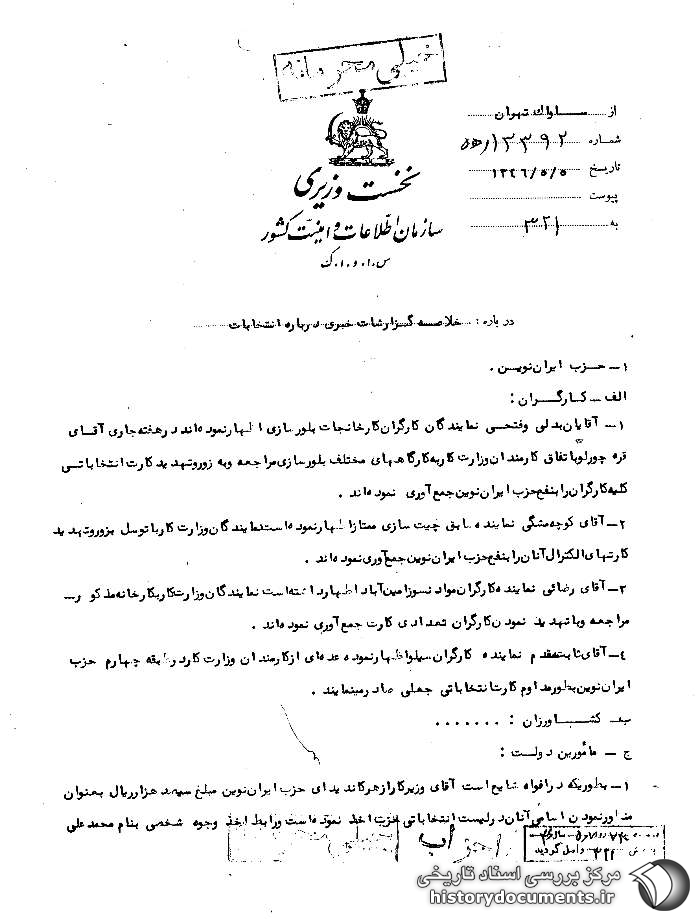 خیلی محرمانه
از ساواك تهران
شماره
تاریخ ۱۳۴۶/۵/۵
پیوست
به ۳۲۱
نخست وزیری
سازمان اطلاعات و امنیت کشور
س.ا.و.ا.ک
درباره : خلاصه گزارشات خبری درباره انتخابات
۱ـ حزب ایران نوین .
الف ـ کارگران :
۱ـ آقایان بدلی وفتحی نمایندگان کارگران کارخانجات بلورسازی اظهار نموده اند در هفته جاری آقای
قره چورلو باتفاق کارمندان وزارت کار به کارگاههای مختلف بلورسازی مراجعه وبه زور وتهدید کارت انتخاباتی
کلیه کارگران را بنفع حزب ایران نوین جمع آوری نموده اند .
۲ـ آقای کوچه مشگی نماینده سابق چیت سازی ممتاز اظهار نموده است نمایندگان وزارت کار با توسل بزور وتهدید
کارتهای الکترال آنان را بنفع حزب ایران نوین جمع آوری نموده اند .
۳ـ آقای رضائی نماینده کارگران مواد نسوز امین آباد اظهار داشته است نمایندگان وزارت کار بکارخانه مذکور
مراجعه وبا تهدید نمودن کارگران تعدادی کارت جمع آوری نموده اند .
٤ـ آقای ثابت مقدم نماینده کارگران سیلو اظهار نموده عده ای از کارمندان وزارت کار در طبقه چهارم حزب
ایران نوین بطور مداوم کارت انتخاباتی جعلی صادر مینمایند .
ب ـ کشاورزان : . . . . . . .
ج ـ مأمورین دولت :
۱ـ بطوریکه در افواه شایع است آقای وزیر کار از هر کاندیدای حزب ایران نوین مبلغ سیصد هزار ریال بعنوان
منظور نمودن اسامی آنان در لیست انتخاباتی حزب اخذ نموده است و رابط اخذ وجوه شخصی بنام محمد علی
خیلی محرمانه
واصل گردید
مرکز بررسی اسناد تاریخی
historydocuments.ir